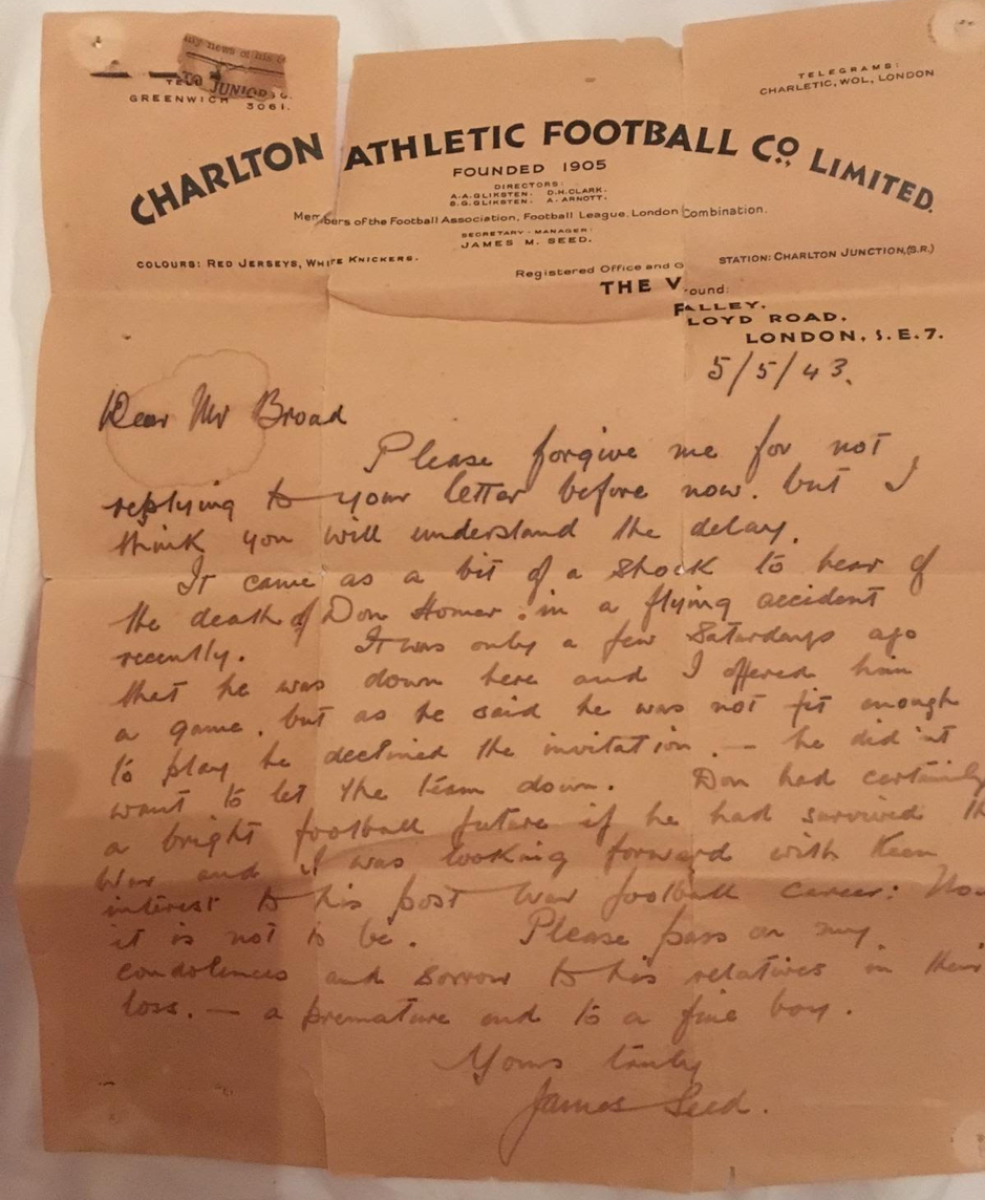 my news of his
TO JUNIOR
GREENWICH
3061.
TELEGRAMS:
CHARLETIC, WOL, LONDON
CHARLTON ATHLETIC FOOTBALL CO., LIMITED.
FOUNDED 1905
DIRECTORS:
A.A.GLIKSTEN. D.H.CLARK.
S.G.GLIKSTEN. A. ARNOTT.
Members of the Football Association, Football League, London Combination.
SECRETARY-MANAGER:
JAMES M. SEED.
COLOURS: RED JERSEYS, WHITE KNICKERS.
STATION: CHARLTON JUNCTION,(S.R.)
Registered Office and Ground:
THE VALLEY,
FLOYD ROAD.
LONDON, S.E.7.
5/5/43.
Dear Mr Broad
Please forgive me for not
replying to your letter before now. but I
think you will understand the delay.
It came as a bit of a shock to hear of
the death of Don Homer in a flying accident
recently. It was only a few Saturdays ago
that he was down here and I offered him
a game. but as he said he was not fit enough
to play he declined the invitation. — he did'nt
want to let the team down. Don had certainly
a bright football future if he had survived th
War and I was looking forward with keen
interest to his post war football career: No
it is not to be. Please pass on my
condolences and sorrow to his relatives in their
loss. — a premature end to a fine boy.
Yours truly
James Seed.